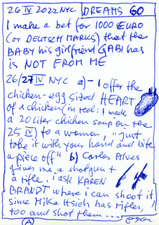 26 IV 2022 NYC DREAMS 60
I make a bet for 1000 EURO
(or DEUTSCH MARKS) that the
BABY his girlfriend GABI has
is NOT FROM ME
26/27 IV NYC a) – I offer the
chicken-egg sized HEART
of a chicken, in red. I made
a 20 liter chicken soup on the
25 IV to a woman, "just
take it with your hand and bite
a piece off" b) Carlos Alves
gives me a shotgun &
a rifle. I ask KAREN
BRANDT where I can shoot it
since Mike Hsieh has rifles,
too and shot them
A